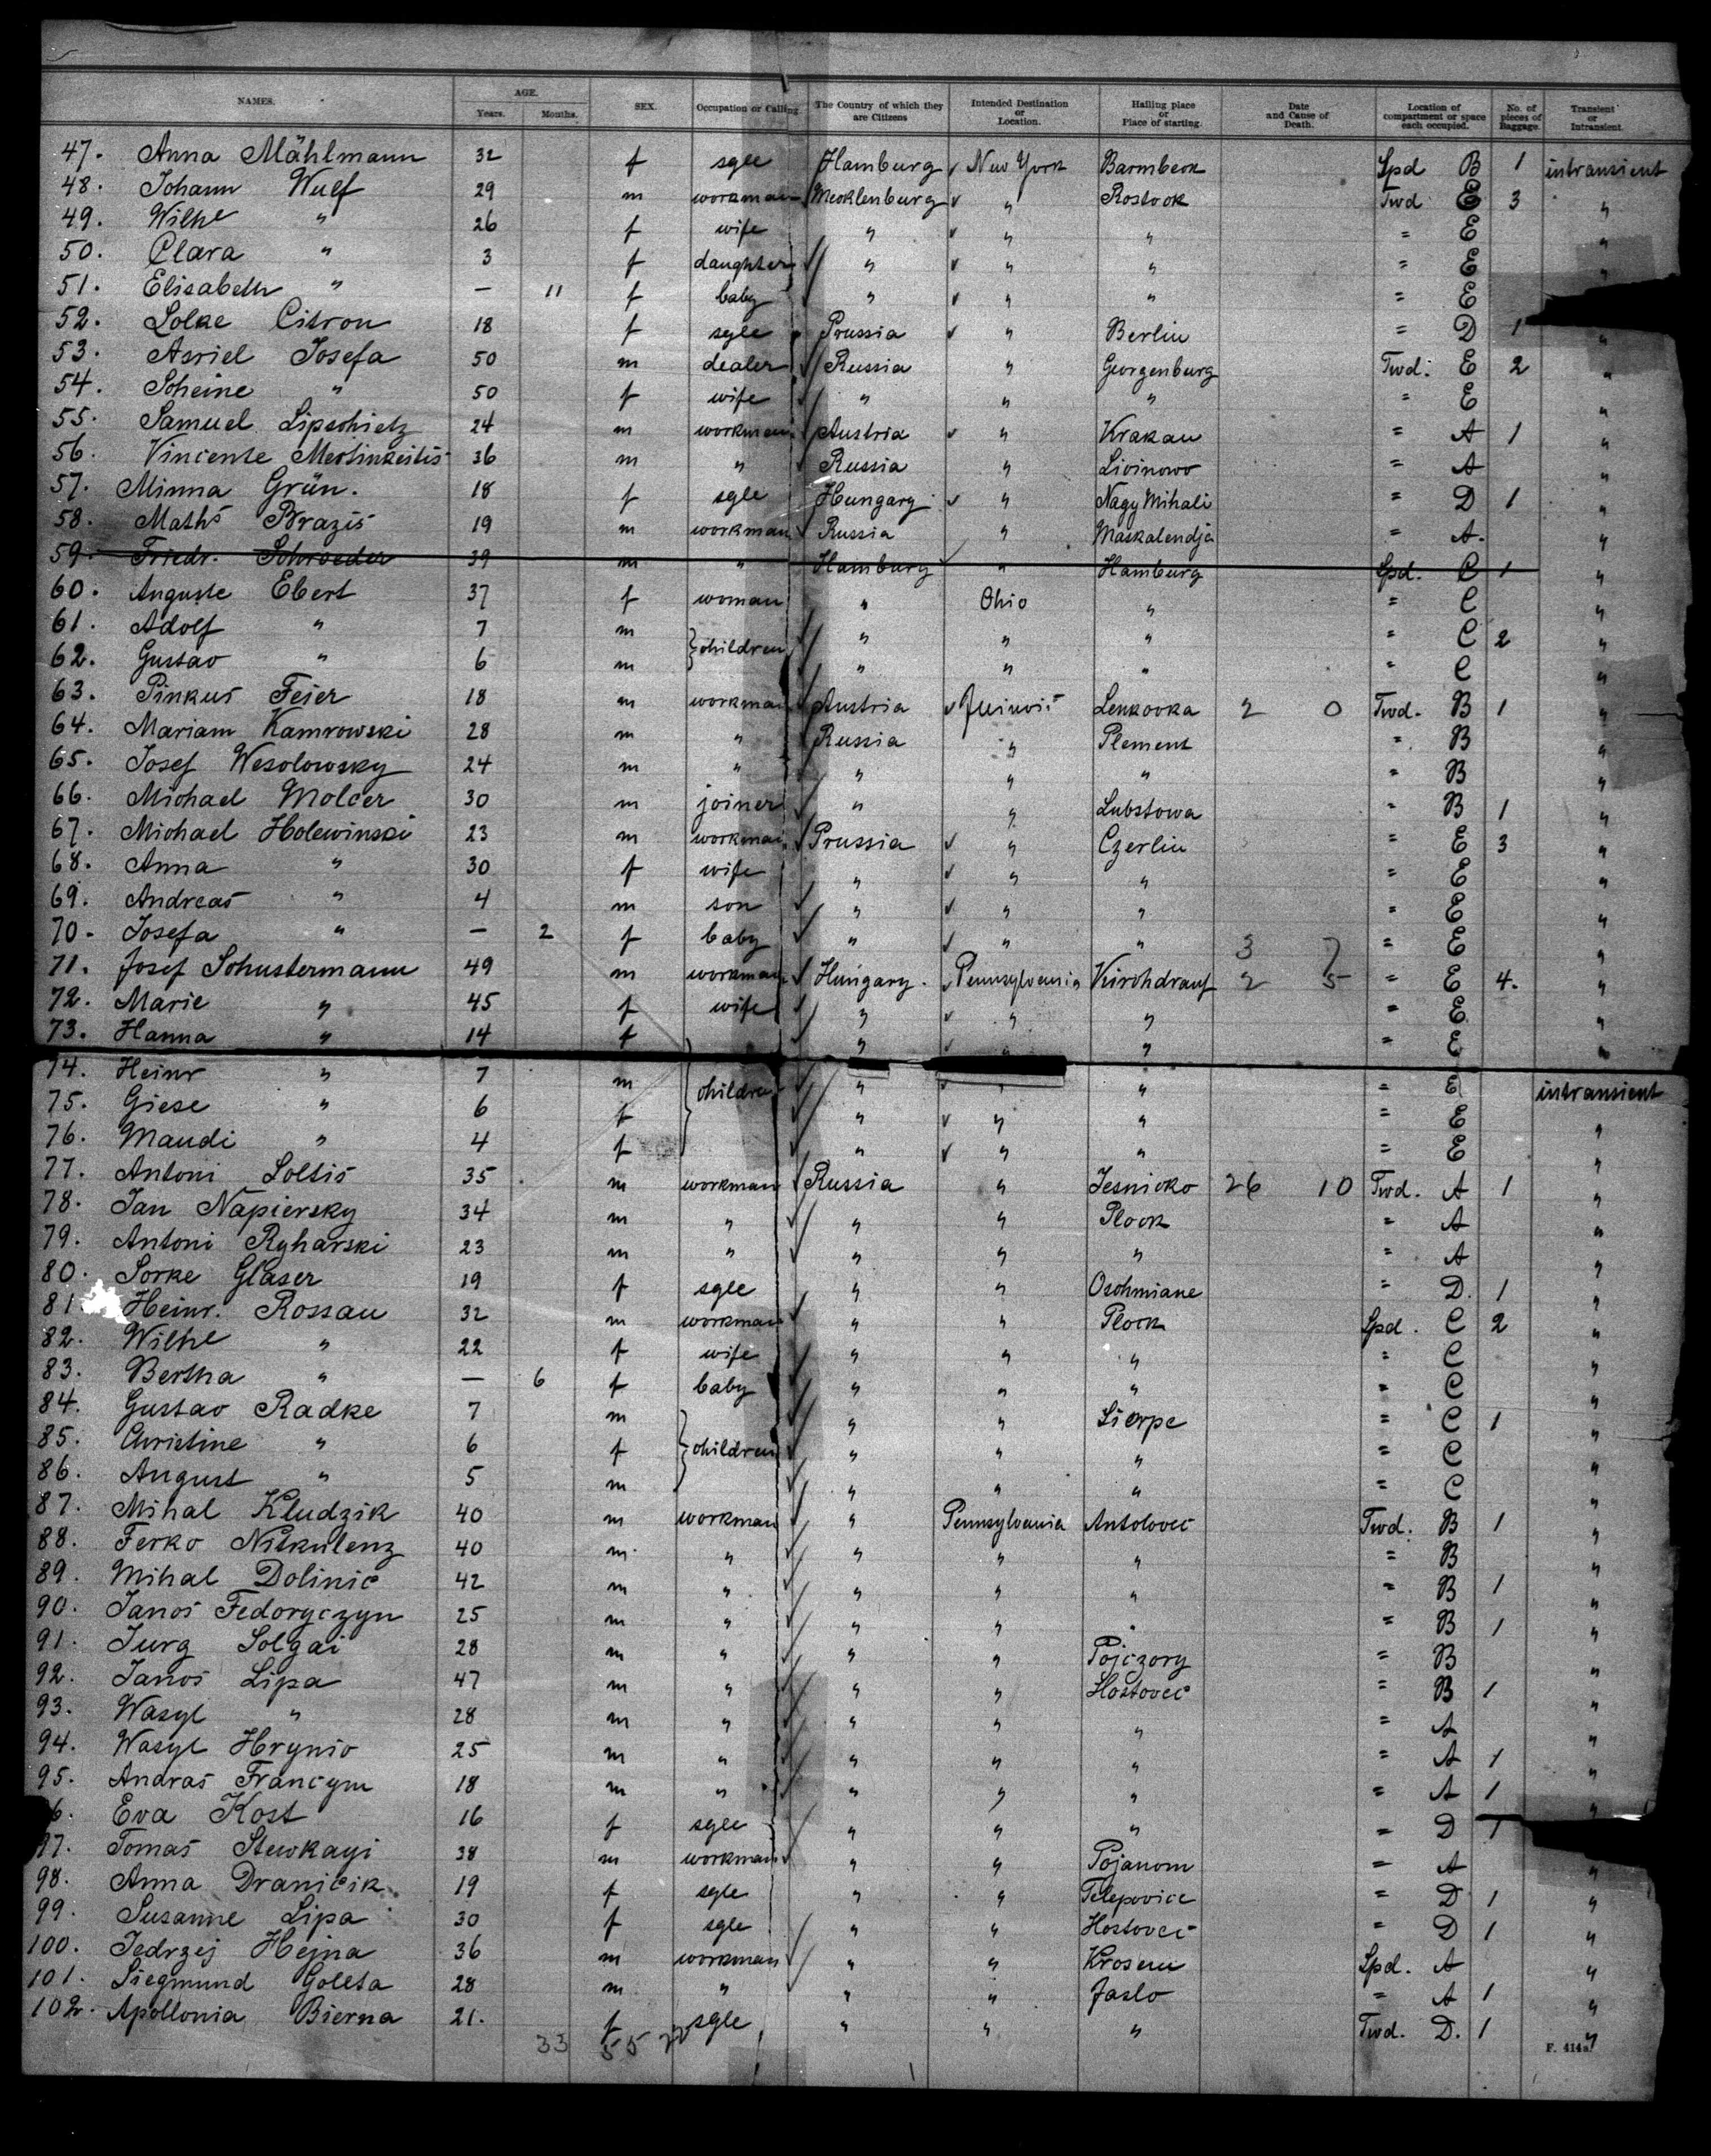 NAMES. AGE. Years. Months. SEX. Occupation or Calling. The Country of which they are Citizens Intended Destination or Location. Hailing place or Place of starting. Date and Cause of Death. Location of compartment or space each occupied. No. of pieces of Baggage. Transient or Intransient.
47. Anna Mählmann 32 f sgle Hamburg New York Barmbeck Spd B 1 intransient
48. Johann Wulf 29 m workman Mecklenburg " Rostock Twd E 3 "
49. Wilhe " 26 f wife " " " = E "
50. Clara " 3 f daughter " " " = E "
51. Elisabeth " — 11 f baby " " " = E
52. Lolke Citron 18 f sgle Prussia " Berlin = D 1 "
53. Asriel Josefa 50 m dealer Russia " Georgenburg Twd. E 2 "
54. Scheine " 50 f wife " " " = E "
55. Samuel Lipschietz 24 m workman Austria " Krakau = A 1 "
56. Vincente 36 m " Russia " Licinowo = A "
57. Minna Grün. 18 f sgle Hungary " Nagy Mihali = D 1 "
58. Maths Brazis 19 m workman Russia " Maskalendja = A. "
59. Friedr. Schroeder 39 m " Hamburg " Hamburg Spd. C 1 "
60. Auguste Ebert 37 f woman " Ohio " = C "
61. Adolf " 7 m children " " " = C 2 "
62. Gustav " 6 m " " " = C "
63. Pinkus Feier 18 m workman Austria Lenkovka 2 0 Twd. B 1 "
64. Mariam Kamrowski 28 m " Russia " Plement " B "
65. Josef Wesolowsky 24 m " " " " " B "
66. Michael Molcer 30 m joiner " " Lubstowa " B 1 "
67. Michael Holewinski 23 m workman Prussia " Czerlin = E 3 "
68. Anna " 30 f wife " " " = E "
69. Andreas " 4 m son " " " = E "
70. Josefa " — 2 f baby " " " 3 7 = E "
71. Josef Schustermann 49 m workman Hungary. Pennsylvania Kirchdrauf 2 5 = E 4. "
72. Marie " 45 f wife " " " = E "
73. Hanna " 14 f " " " = E "
74. Heinr " 7 m children " " " = E intransient
75. Giese " 6 f " " " = E "
76. Maudi " 4 f " " " = E "
77. Antoni Soltis 35 m workman Russia " Jesnicko 26 10 Twd. A 1 "
78. Jan Napiersky 34 m " " " Plock = A "
79. Antoni Ryharski 23 m " " " " = A "
80. Sorke Glaser 19 f sgle " " Oschmiane = D. 1 "
81. Heinr. Rossau 32 m workman " " Plock Spd. C 2 "
82. Wilhe " 22 f wife " " " = C "
83. Bertha " — 6 f baby " " " = C "
84. Gustav Radke 7 m children " " Sierpe = C 1 "
85. Christine " 6 f " " " = C "
86. August " 5 m " " " = C "
87. Mihal Kludzik 40 m workman " Pennsylvania Antolovec Twd. B 1 "
88. Ferko Nitkulenz 40 m " " " " = B "
89. Mihal Dolinic 42 m " " " " = B 1 "
90. Janos Fedoryczyn 25 m " " " " = B 1 "
91. Jurg Solgai 28 m " " " Pojczory = B "
92. Janos Lipa 47 m " " " Hostovec = B 1 "
93. Wasyl " 28 m " " " " = A "
94. Wasyl Hrynio 25 m " " " " = A 1 "
95. Andras Francym 18 m " " " " = A 1 "
6. Eva Kost 16 f sgle " " " = D 1
97. Tomas Stewkayi 38 m workman " " Pojanom = A "
98. Anna Dranicik 19 f sgle " " Telepovice = D 1 "
99. Susanne Lipa 30 f sgle " " Hostovec = D 1 "
100. Jedrzej Hejna 36 m workman " " Krosenu Spd. A "
101. Siegmund Goleta 28 m " " " Jaslo = A 1 "
102. Apollonia Bierna 21. f sgle " " " Twd. D. 1 "
33 55 22
F. 414a